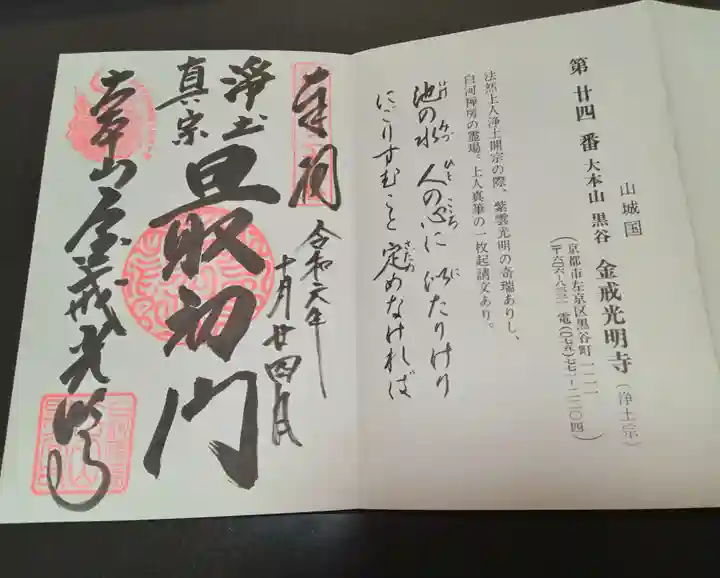 山城国
第廿四番 大本山 黒谷 金戒光明寺(浄土宗)
(京都市左京区黒谷町一二一
法然上人浄土開宗の際、紫雲光明の奇瑞ありし、
白河禅房の霊場。上人真筆の一枚起請文あり。
池の水 人の心に 似たりけり
にごりすむこと 定めなければ
奉拝
令和六年
十月廿四日
浄土
真宗
最初門
大本山 金戒光明寺